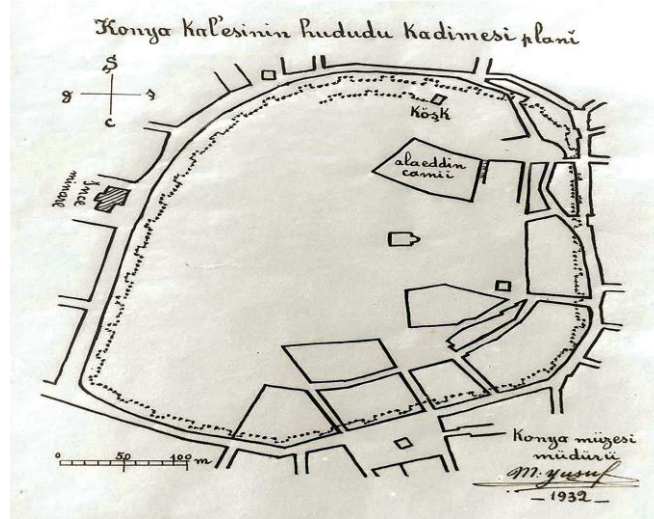 Konya kal'esinin hududu kadimesi planı
Ş
g
ş
c
Köşk
alaeddin
camii
İnce
minare
0 50 100 m
Konya müzesi
müdürü
M. Yusuf
1932